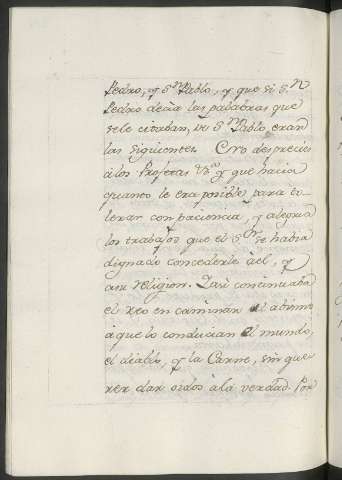 Pedro, y S.n Pablo, y que si S.n
Pedro decia las palabras que
se le citaban, de S.n Pablo, eran
las siguientes. No desprecies
a los Profetas y que hacia
quanto le era posible para to-
lerar con paciencia, y alegria
los trabajos que el S.or se habia
dignado concederle à el, y
a su religion. Y asi continuaba
el reo en caminàr al abismo
à que lo conducian el mundo,
el diablo, y la Carne, sin que-
rer dar oidos à la verdad. Por